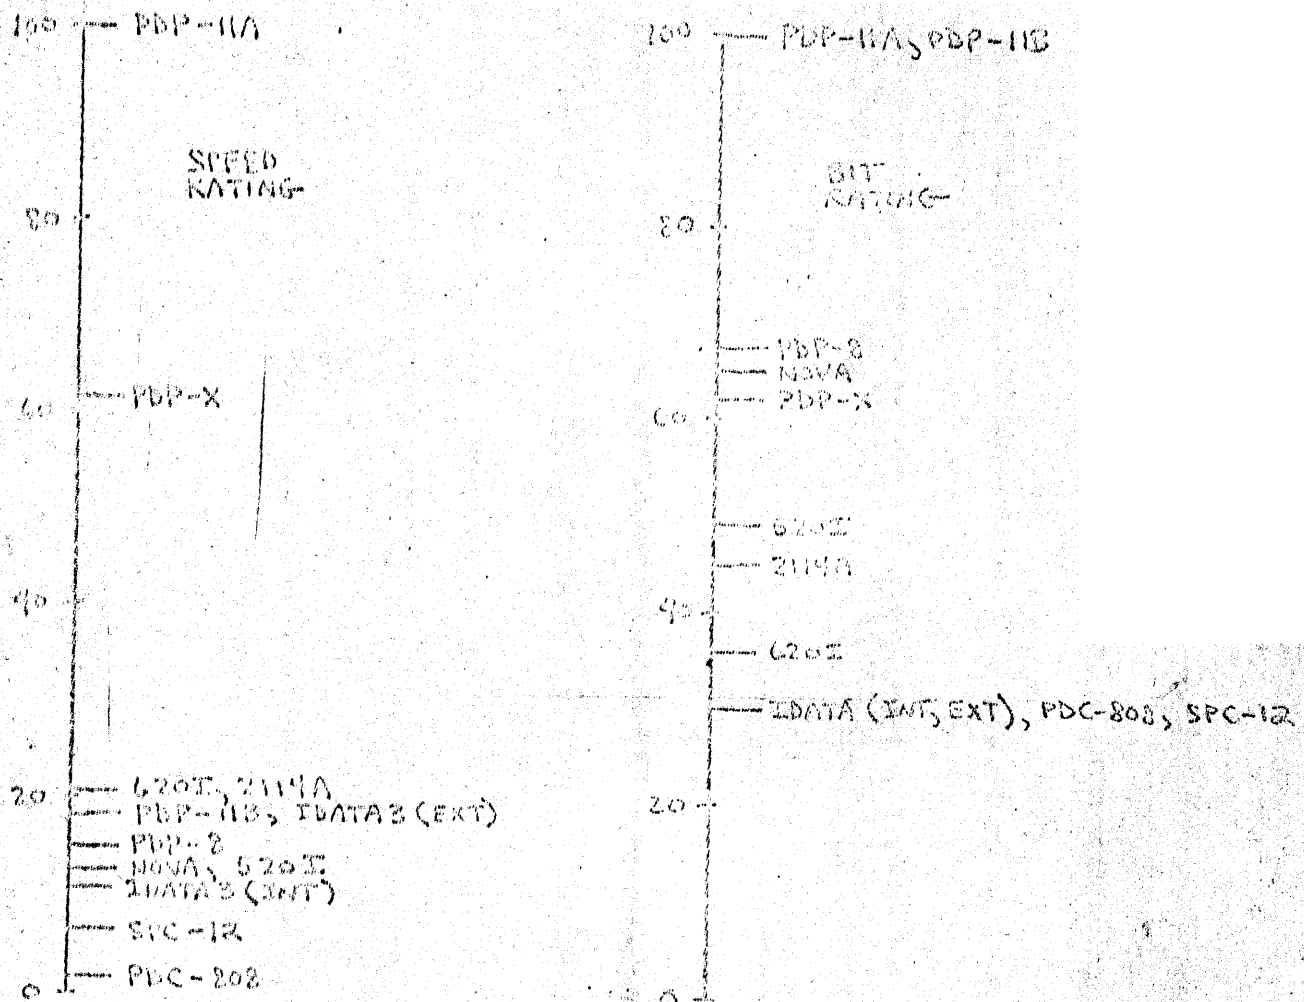 100 PDP-11A
SPEED
RATING
80
PDP-X
60
40
620I, 2114A
20
PDP-11B, IDATA3 (EXT)
PDP-8
NOVA, 520I
IDATA3 (INT)
SPC-12
PDC-808
0
100 PDP-11A, PDP-11B
BIT
RATING
80
PDP-8
NOVA
PDP-X
60
520I
2114A
40
620I
IDATA (INT, EXT), PDC-808, SPC-12
20
0